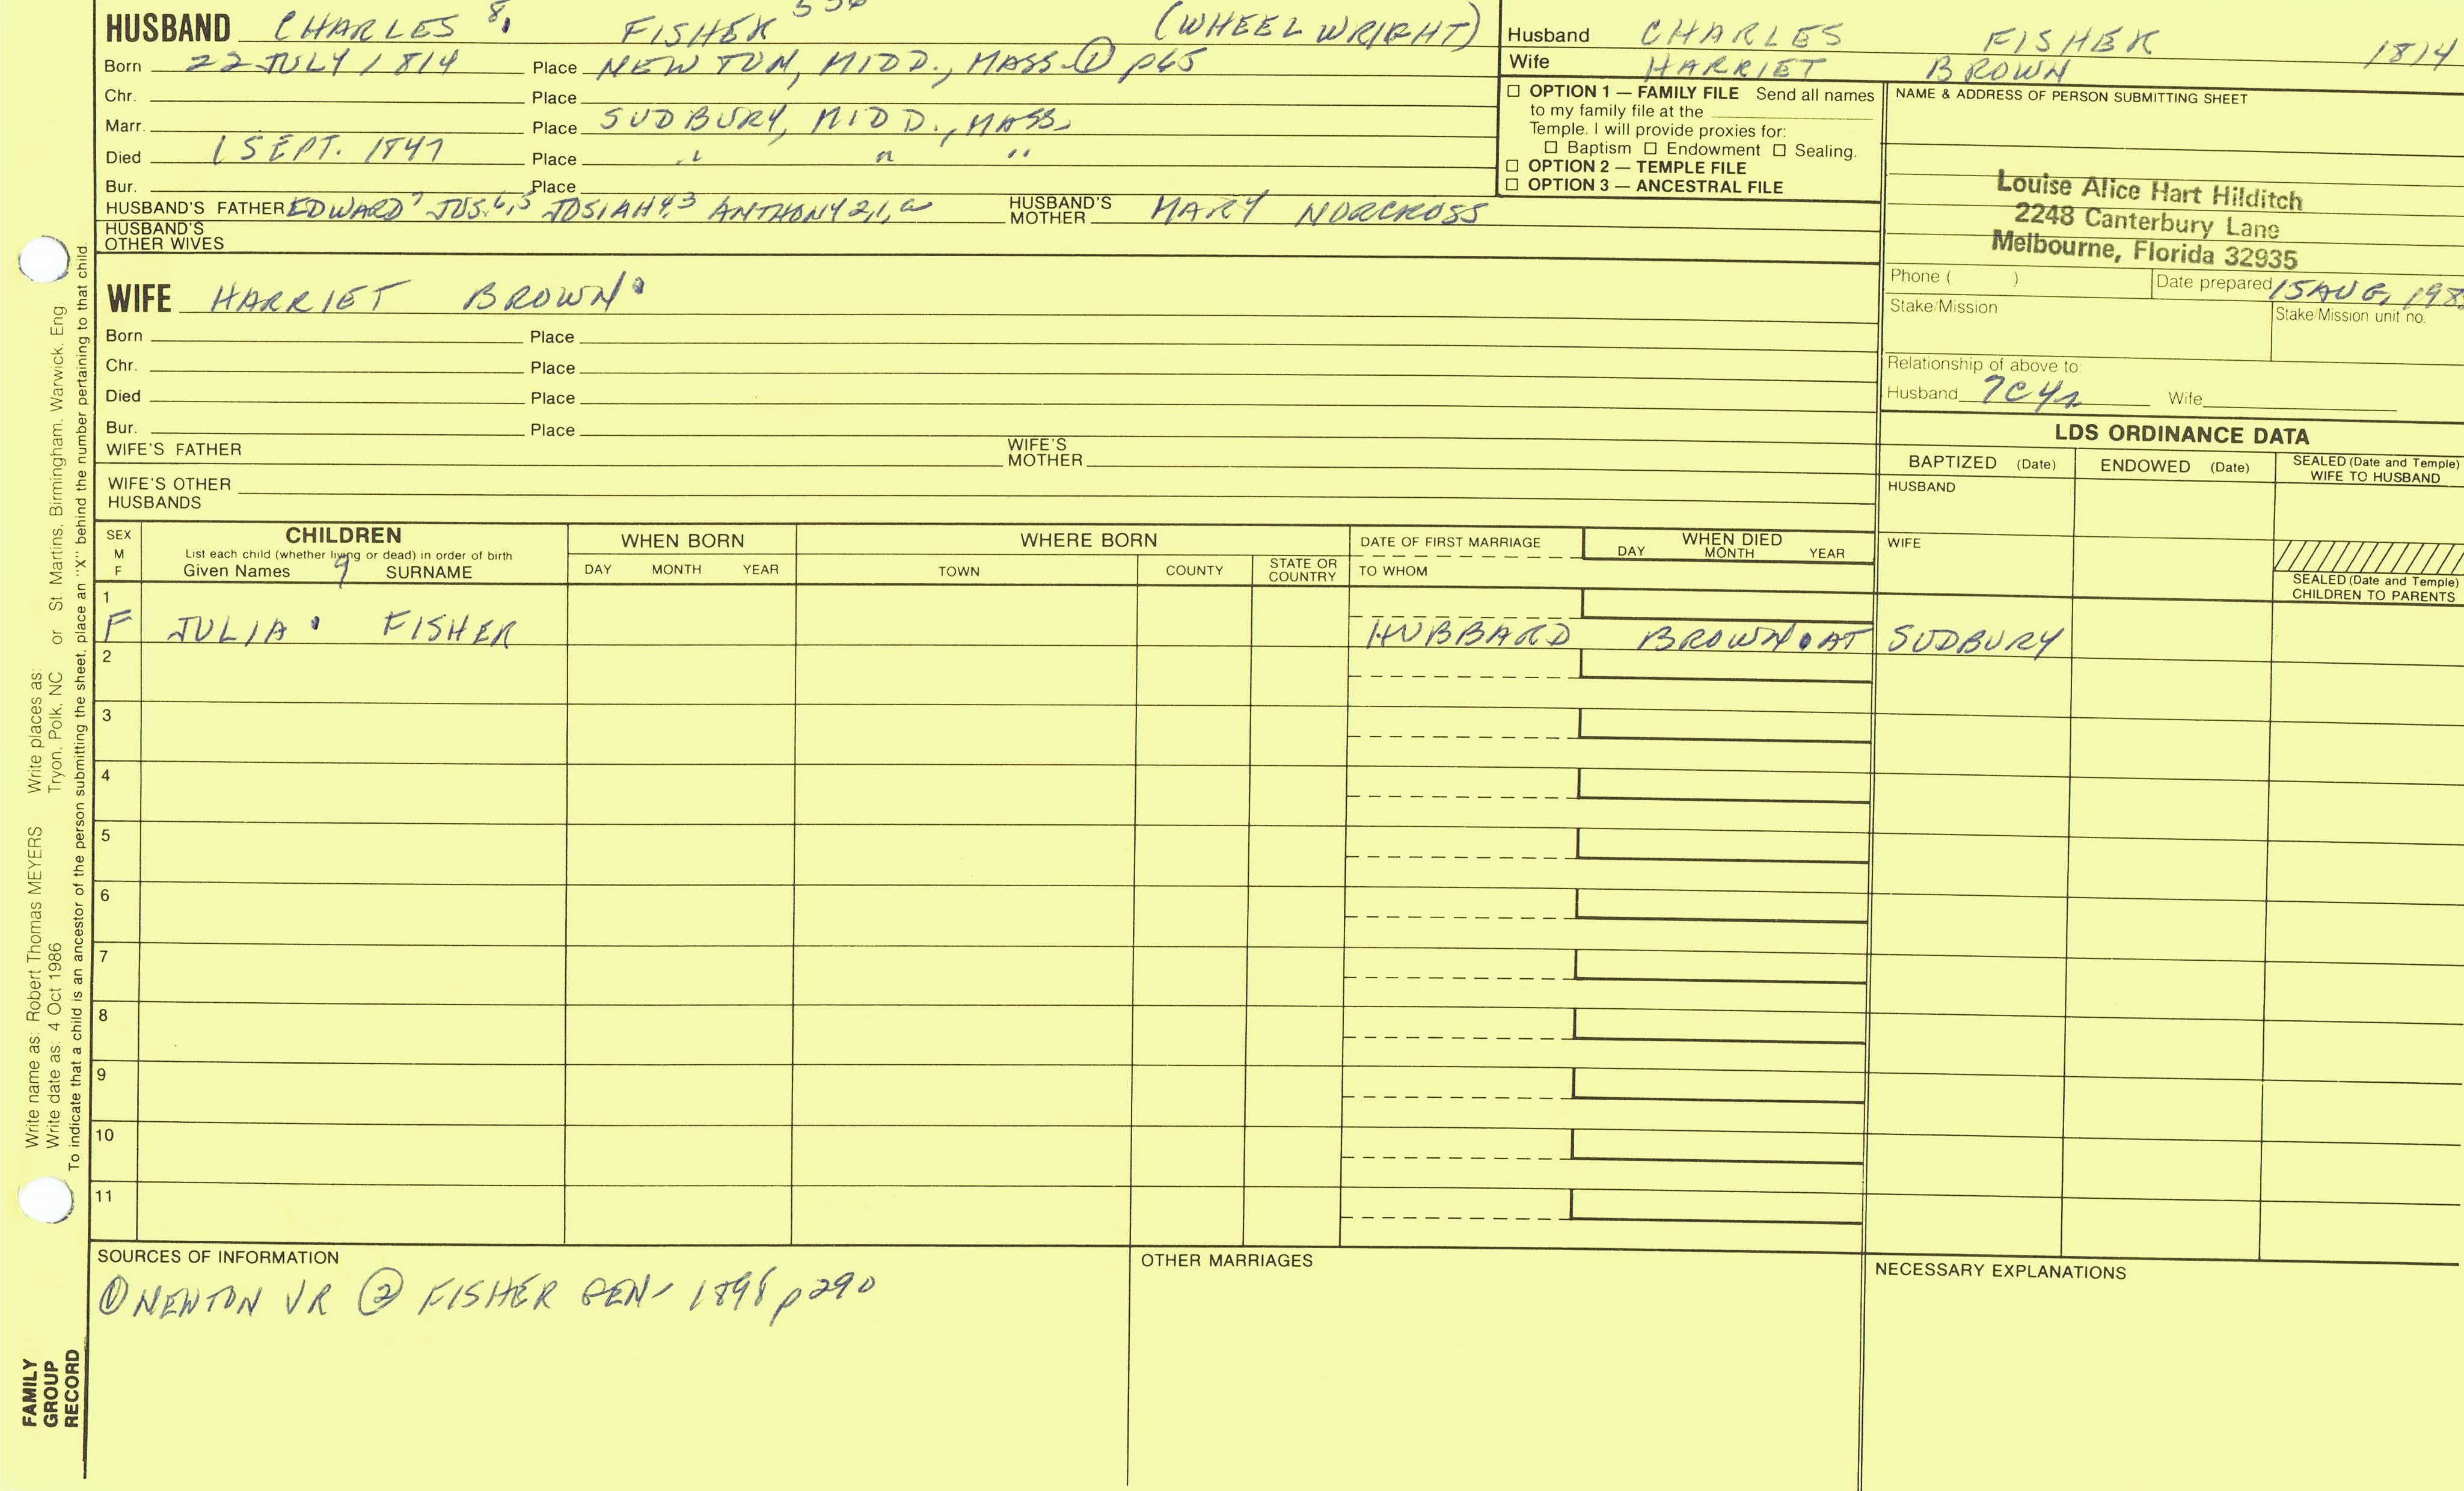 HUSBAND CHARLES 8. FISHER (WHEELWRIGHT)
Born 22 JULY 1814 Place NEWTON, MIDD., MASS ① p65
Chr. Place
Marr. Place SUDBURY, MIDD., MASS.
Died 1 SEPT. 1847 Place " " "
Bur. Place
HUSBAND'S FATHER EDWARD7 JOS.6,5 JOSIAH4,3 ANTHONY2,1,a HUSBAND'S MOTHER MARY NORCROSS
HUSBAND'S OTHER WIVES
Husband CHARLES FISHER 1814
Wife HARRIET BROWN
☐ OPTION 1 — FAMILY FILE Send all names
to my family file at the
Temple. I will provide proxies for:
☐ Baptism ☐ Endowment ☐ Sealing.
☐ OPTION 2 — TEMPLE FILE
☐ OPTION 3 — ANCESTRAL FILE
NAME & ADDRESS OF PERSON SUBMITTING SHEET
Louise Alice Hart Hilditch
2248 Canterbury Lane
Melbourne, Florida 32935
Phone ( ) Date prepared 15 AUG, 198
Stake/Mission Stake/Mission unit no.
Relationship of above to:
Husband 7C4r Wife
WIFE HARRIET BROWN
Born Place
Chr. Place
Died Place
Bur. Place
WIFE'S FATHER WIFE'S MOTHER
WIFE'S OTHER HUSBANDS
LDS ORDINANCE DATA
BAPTIZED (Date) ENDOWED (Date) SEALED (Date and Temple) WIFE TO HUSBAND
HUSBAND
WIFE
SEALED (Date and Temple) CHILDREN TO PARENTS
SEX M F
CHILDREN
List each child (whether living or dead) in order of birth
Given Names 9 SURNAME
WHEN BORN
DAY MONTH YEAR
WHERE BORN
TOWN COUNTY STATE OR COUNTRY
DATE OF FIRST MARRIAGE
TO WHOM
WHEN DIED
DAY MONTH YEAR
1
F JULIA FISHER HUBBARD BROWN AT SUDBURY
2
3
4
5
6
7
8
9
10
11
SOURCES OF INFORMATION
① NEWTON VR ② FISHER GEN- 1898 p290
OTHER MARRIAGES
NECESSARY EXPLANATIONS
Write name as: Robert Thomas MEYERS Write places as:
Write date as: 4 Oct 1986 Tryon, Polk, NC or St. Martins, Birmingham, Warwick, Eng
To indicate that a child is an ancestor of the person submitting the sheet, place an "X" behind the number pertaining to that child.
FAMILY
GROUP
RECORD